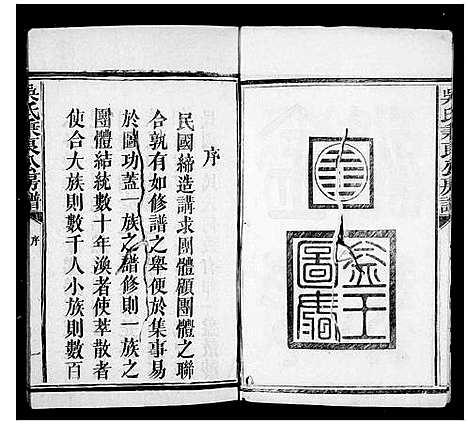 序
民國締造講求團體顧團體之聯
合孰有如修譜之舉便於集事易
於圖功蓋一族之譜修則一族之
團體結統數十年渙者使萃散者
使合大族則數千人小族則數百
吳氏秉良公房譜
序